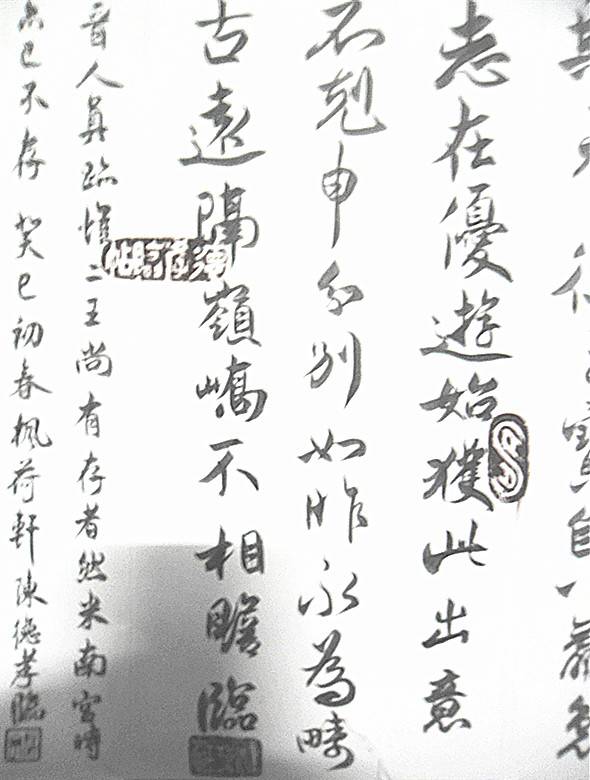 寶自以羸患
志在優遊始獲此出意
不剋申分別如昨永為疇
古遠隔嶺嶠不相瞻臨
晉人真跡惟二王尚有存者然米南宮時
已不存 癸巳初春楓荷軒陳德孝臨